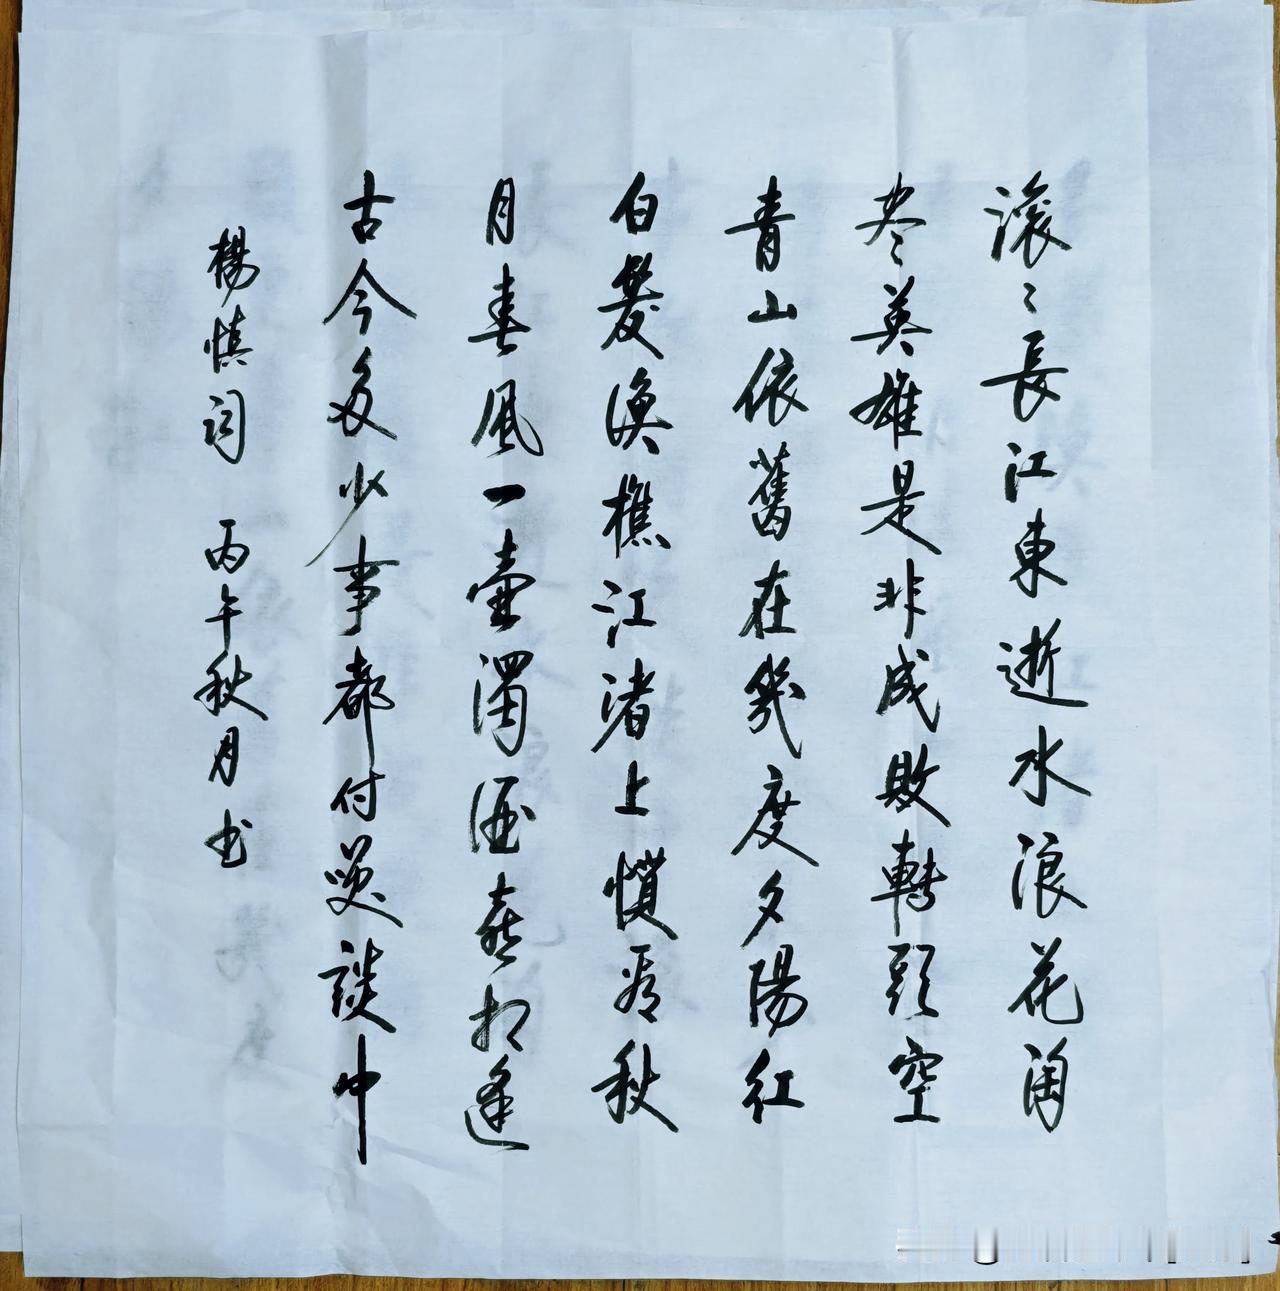 滚〻長江東逝水浪花淘
尽英雄是非成敗轉頭空
青山依舊在幾度夕陽红
白髮渔樵江渚上惯看秋
月春風一壶濁酒喜相逢
古今多少事都付笑談中
楊慎词 丙午秋月书